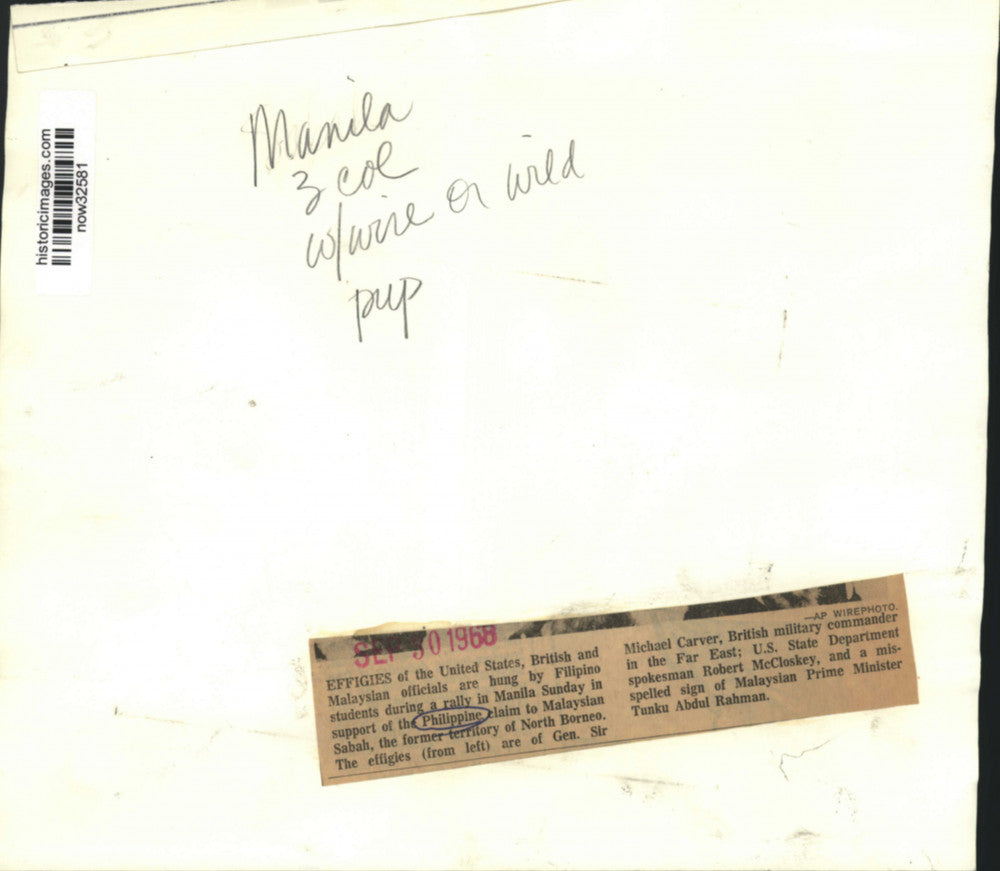 historicimages.com
now32581
Manila
3 col
w/wire or wild
pup
SEP 30 1968
—AP WIREPHOTO.
EFFIGIES of the United States, British and
Malaysian officials are hung by Filipino
students during a rally in Manila Sunday in
support of the Philippine claim to Malaysian
Sabah, the former territory of North Borneo.
The effigies (from left) are of Gen. Sir
Michael Carver, British military commander
in the Far East; U.S. State Department
spokesman Robert McCloskey, and a mis-
spelled sign of Malaysian Prime Minister
Tunku Abdul Rahman.